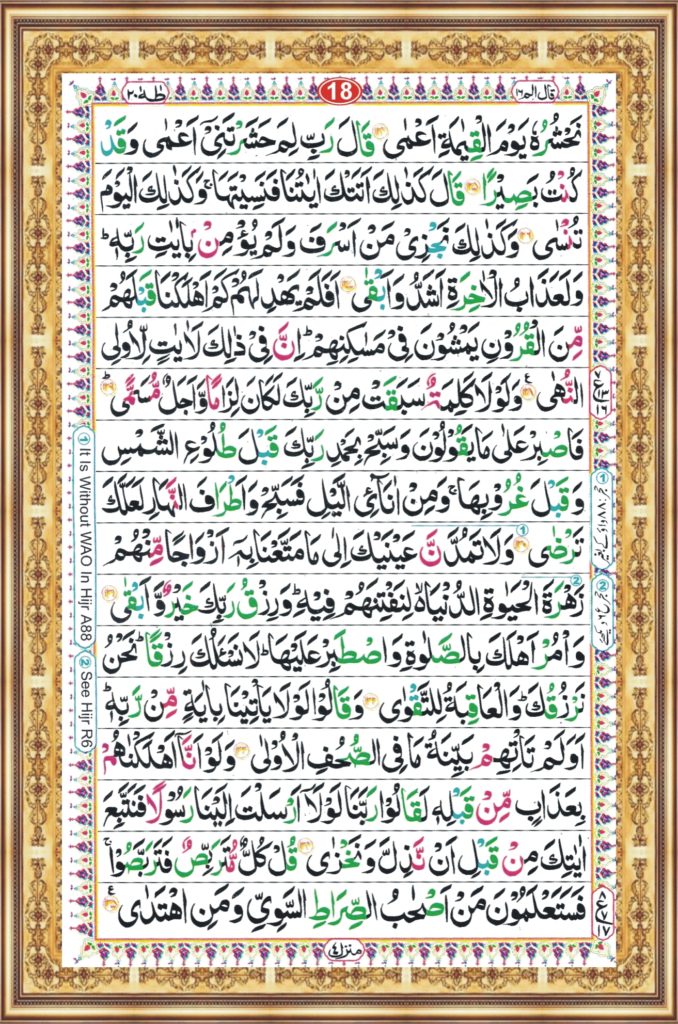 قال الم ١٦
18
طٰهٰ ٢٠
نَحْشُرُهٗ يَوْمَ الْقِيٰمَةِ اَعْمٰى ١٢٤ قَالَ رَبِّ لِمَ حَشَرْتَنِىْۤ اَعْمٰى وَقَدْ
كُنْتُ بَصِيْرًا ١٢٥ قَالَ كَذٰلِكَ اَتَتْكَ اٰيٰتُنَا فَنَسِيْتَهَا ۚ وَكَذٰلِكَ الْيَوْمَ
تُنْسٰى ١٢٦ وَكَذٰلِكَ نَجْزِىْ مَنْ اَسْرَفَ وَلَمْ يُؤْمِنْۢ بِاٰيٰتِ رَبِّهٖ ؕ
وَلَعَذَابُ الْاٰخِرَةِ اَشَدُّ وَاَبْقٰى ١٢٧ اَفَلَمْ يَهْدِ لَهُمْ كَمْ اَهْلَكْنَا قَبْلَهُمْ
مِّنَ الْقُرُوْنِ يَمْشُوْنَ فِىْ مَسٰكِنِهِمْ ؕ اِنَّ فِىْ ذٰلِكَ لَاٰيٰتٍ لِّاُولِى
النُّهٰى ١٢٨ وَلَوْلَا كَلِمَةٌ سَبَقَتْ مِنْ رَّبِّكَ لَكَانَ لِزَامًا وَّاَجَلٌ مُّسَمًّى ١٢٩
فَاصْبِرْ عَلٰى مَا يَقُوْلُوْنَ وَسَبِّحْ بِحَمْدِ رَبِّكَ قَبْلَ طُلُوْعِ الشَّمْسِ
وَقَبْلَ غُرُوْبِهَا ۚ وَمِنْ اٰنَآئِ الَّيْلِ فَسَبِّحْ وَاَطْرَافَ النَّهَارِ لَعَلَّكَ
تَرْضٰى ١٣٠ وَلَا تَمُدَّنَّ عَيْنَيْكَ اِلٰى مَا مَتَّعْنَا بِهٖۤ اَزْوَاجًا مِّنْهُمْ
زَهْرَةَ الْحَيٰوةِ الدُّنْيَا ۙ لِنَفْتِنَهُمْ فِيْهِ ؕ وَرِزْقُ رَبِّكَ خَيْرٌ وَّاَبْقٰى ١٣١
وَاْمُرْ اَهْلَكَ بِالصَّلٰوةِ وَاصْطَبِرْ عَلَيْهَا ؕ لَا نَسْئَلُكَ رِزْقًا ؕ نَحْنُ
نَرْزُقُكَ ؕ وَالْعَاقِبَةُ لِلتَّقْوٰى ١٣٢ وَقَالُوْا لَوْلَا يَاْتِيْنَا بِاٰيَةٍ مِّنْ رَّبِّهٖ ؕ
اَوَلَمْ تَاْتِهِمْ بَيِّنَةُ مَا فِى الصُّحُفِ الْاُوْلٰى ١٣٣ وَلَوْ اَنَّاۤ اَهْلَكْنٰهُمْ
بِعَذَابٍ مِّنْ قَبْلِهٖ لَقَالُوْا رَبَّنَا لَوْلَاۤ اَرْسَلْتَ اِلَيْنَا رَسُوْلًا فَنَتَّبِعَ
اٰيٰتِكَ مِنْ قَبْلِ اَنْ نَّذِلَّ وَنَخْزٰى ١٣٤ قُلْ كُلٌّ مُّتَرَبِّصٌ فَتَرَبَّصُوْا ۚ
فَسَتَعْلَمُوْنَ مَنْ اَصْحٰبُ الصِّرَاطِ السَّوِىِّ وَمَنِ اهْتَدٰى ١٣٥
منزل ٤
① It Is Without WAO In Hijr A88
② See Hijr R6